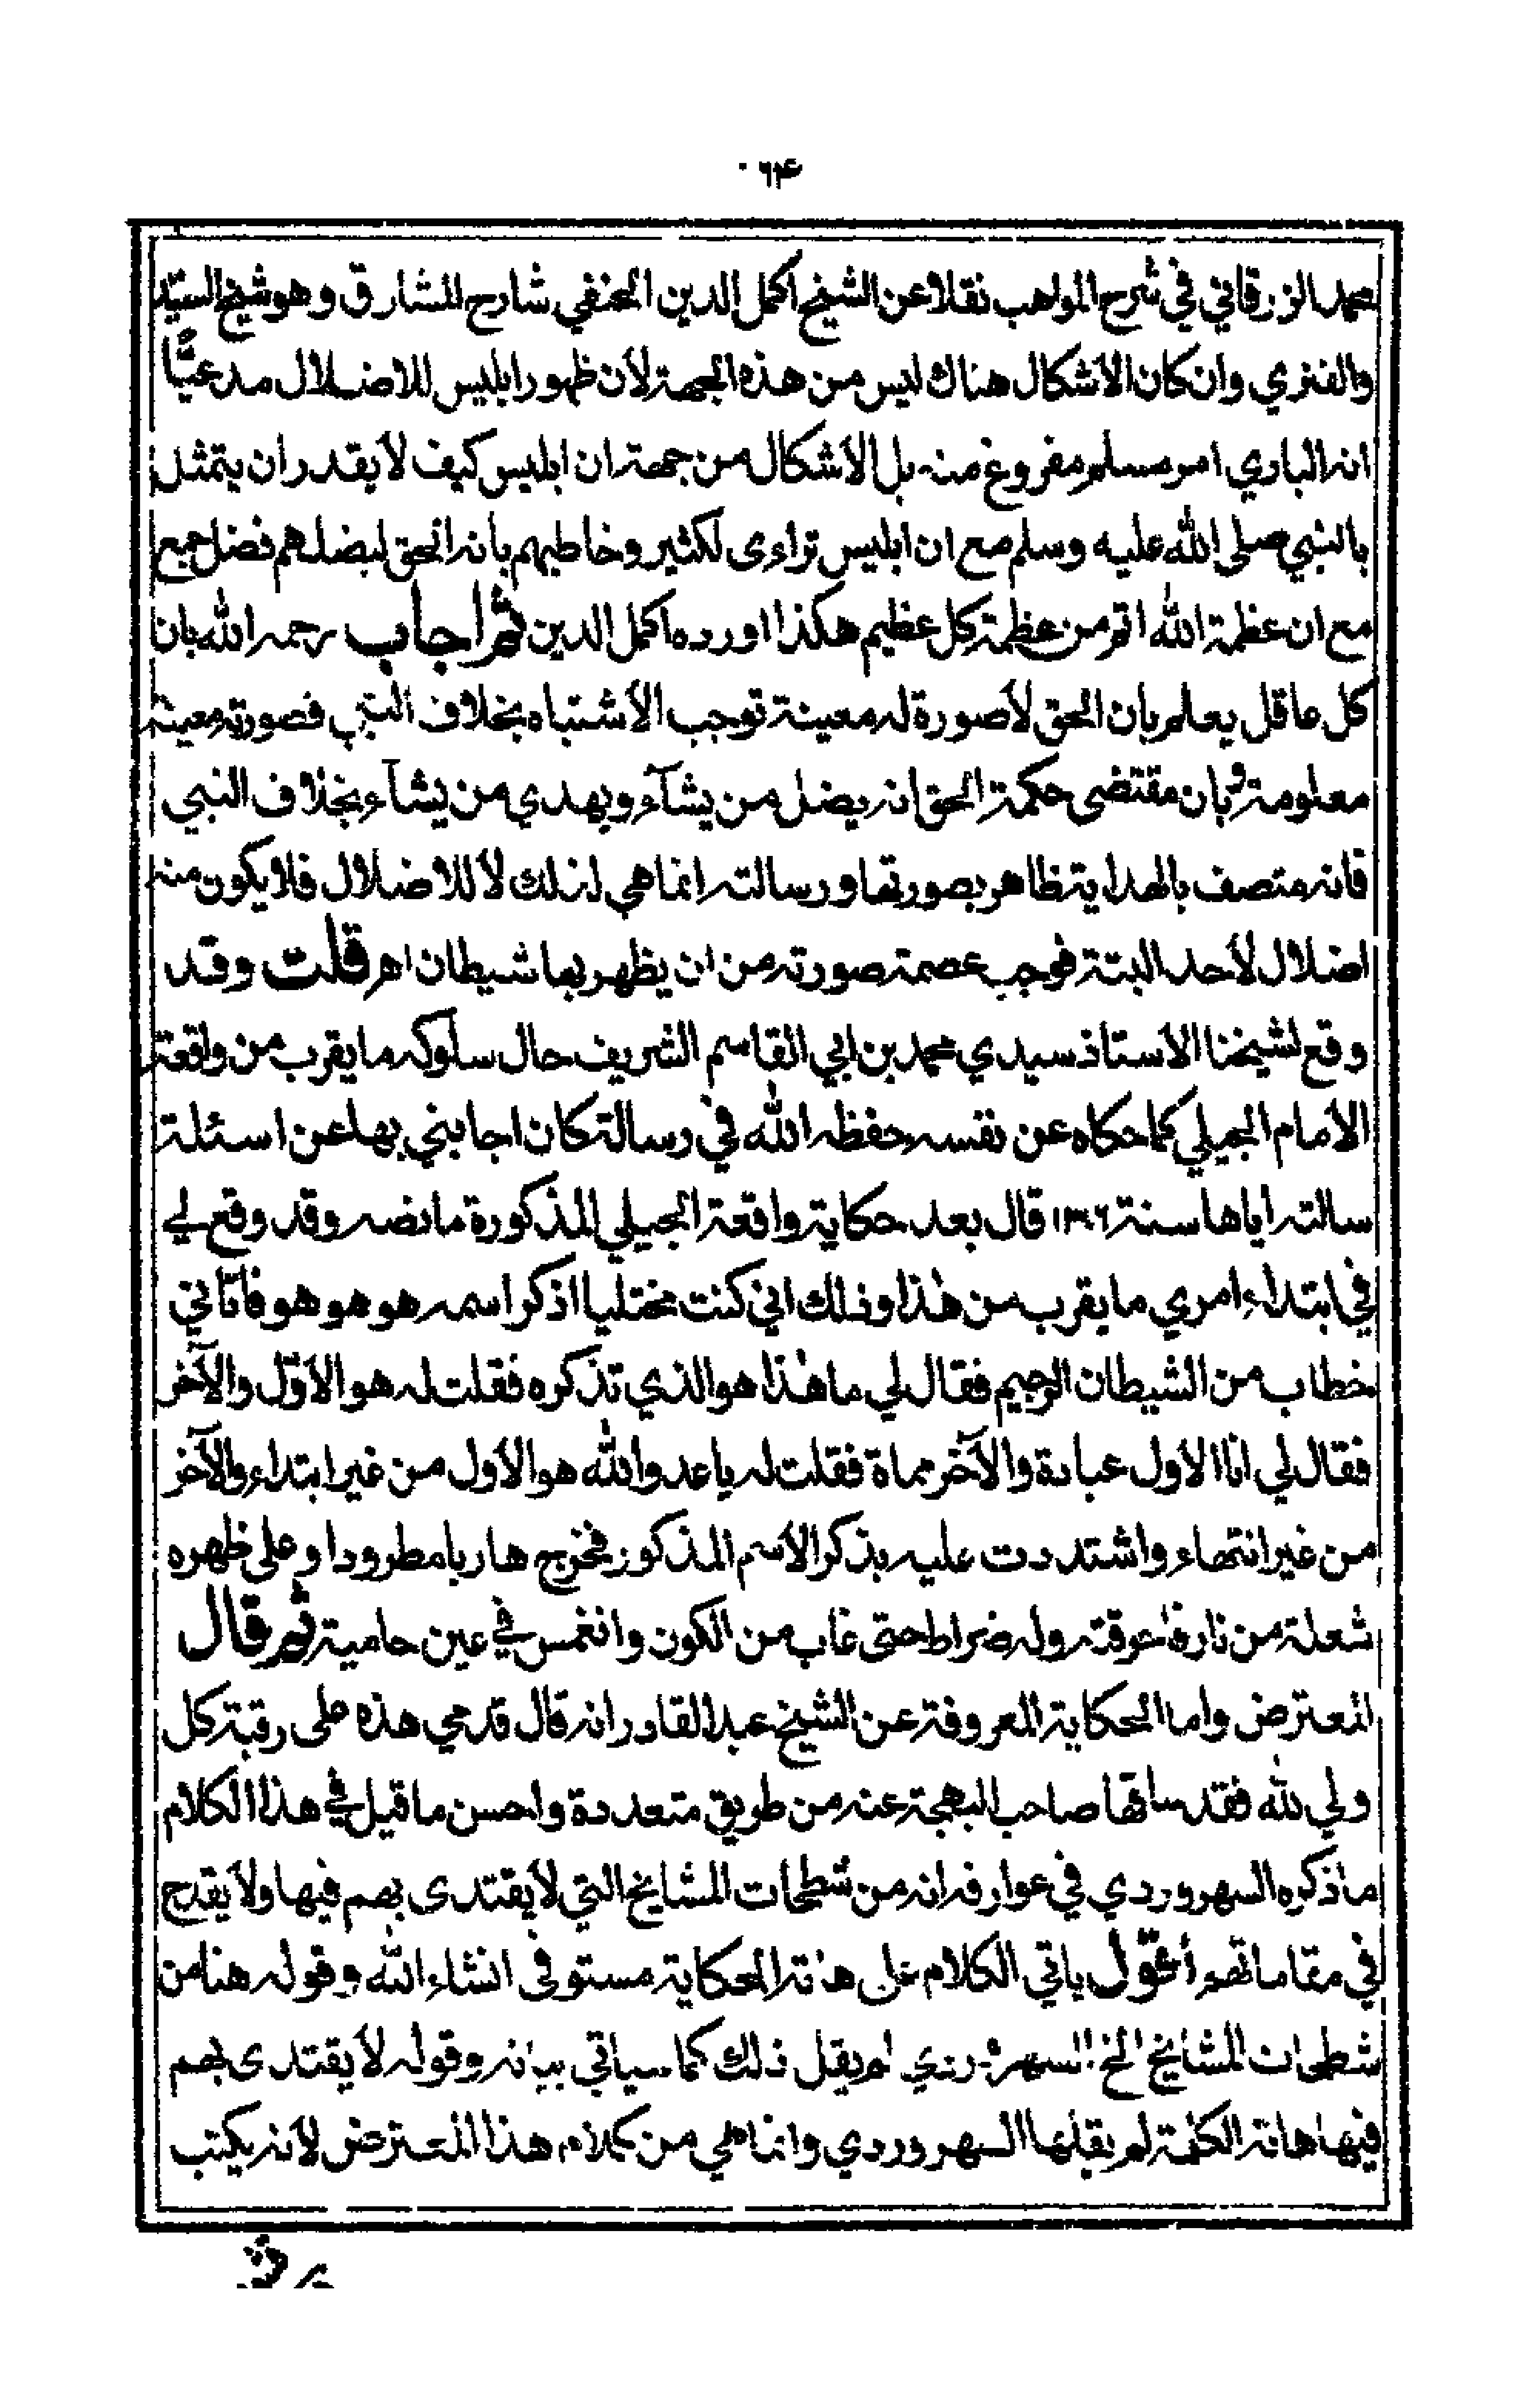 ٠٦٤
محمد الزرقاني في شرح المواهب نقلا عن الشيخ اكمل الدين الحنفي شارح المشارق وهو شيخ السيّد
والفنري وان كان الأشكال هناك ليس من هذه الجهة لأن ظهور ابليس للاضلال مدعيًّا
انه الباري امر مسلم مفروغ منه بل الأشكال من جهة ان ابليس كيف لأ يقدر ان يتمثل
بالنبي صلى الله عليه وسلم مع ان ابليس تراءى لكثير وخاطبهم بانه الحق ليضلهم فضل جمع
مع ان عظمة الله اتم من عظمة كل عظيم هكذا اورده اكمل الدين ثم اجاب رحمه الله بان
كل عاقل يعلم بان الحق لأ صورة له معينة توجب الأشتباه بخلاف النبي فصورته معينة
معلومة وبان مقتضى حكمة الحق انه يضل من يشآء ويهدي من يشآء بخلاف النبي
فانه متصف بالهداية ظاهر بصورتها ورسالته انما هي لذلك لأ للاضلال فلا يكون منه
اضلال لأحد البتة فوجب عصمة صورته من ان يظهر بها شيطان اهر قلت وقد
وقع لشيخنا الأستاذ سيدي محمد بن ابي القاسم الشريف حال سلوكه ما يقرب من واقعة
الأمام الجيلي كما حكاه عن نفسه حفظه الله في رسالة كان اجابني بها عن اسئلة
سالته اياها سنة ١٣٠٦ قال بعد حكاية واقعة الجيلي المذكورة ما نصه وقد وقع لي
في ابتداء امري ما يقرب من هذا وذلك اني كنت مختليا اذكر اسمه هو هو هو فاتاني
خطاب من الشيطان الرجيم فقال لي ما هذا هو الذي تذكره فقلت له هو الأوّل والآخر
فقال لي انا الأول عبادة والآخر مماة فقلت له يا عدو الله هو الأول من غير ابتداء والآخر
من غير انتهاء واشتددت عليه بذكر الأسم المذكور فخرج هاربا مطرودا وعلى ظهره
شعلة من نار فاحرقته وله ضراط حتى غاب من الكون وانغمس في عين حامية ثم قال
المعترض واما الحكاية المعروفة عن الشيخ عبد القادر انه قال قدمي هذه على رقبة كل
ولي لله فقد ساقها صاحب البهجة عنه من طريق متعددة واحسن ما قيل في هذا الكلام
ما ذكره السهروردي في عوارفه انه من شطحات المشايخ التي لأ يقتدى بهم فيها ولأ يقدح
في مقاماتهم أقول ياتي الكلام على هاته الحكاية مستوفى انشاء الله وقوله هنا من
شطحات المشايخ الخ السهروردي لم يقل ذلك كما سياتي بيانه وقوله لأ يقتدى بهم
فيها هاته الكلمة لم يقلها السهروردي وانما هي من كلام هذا المعترض لأنه يكتب